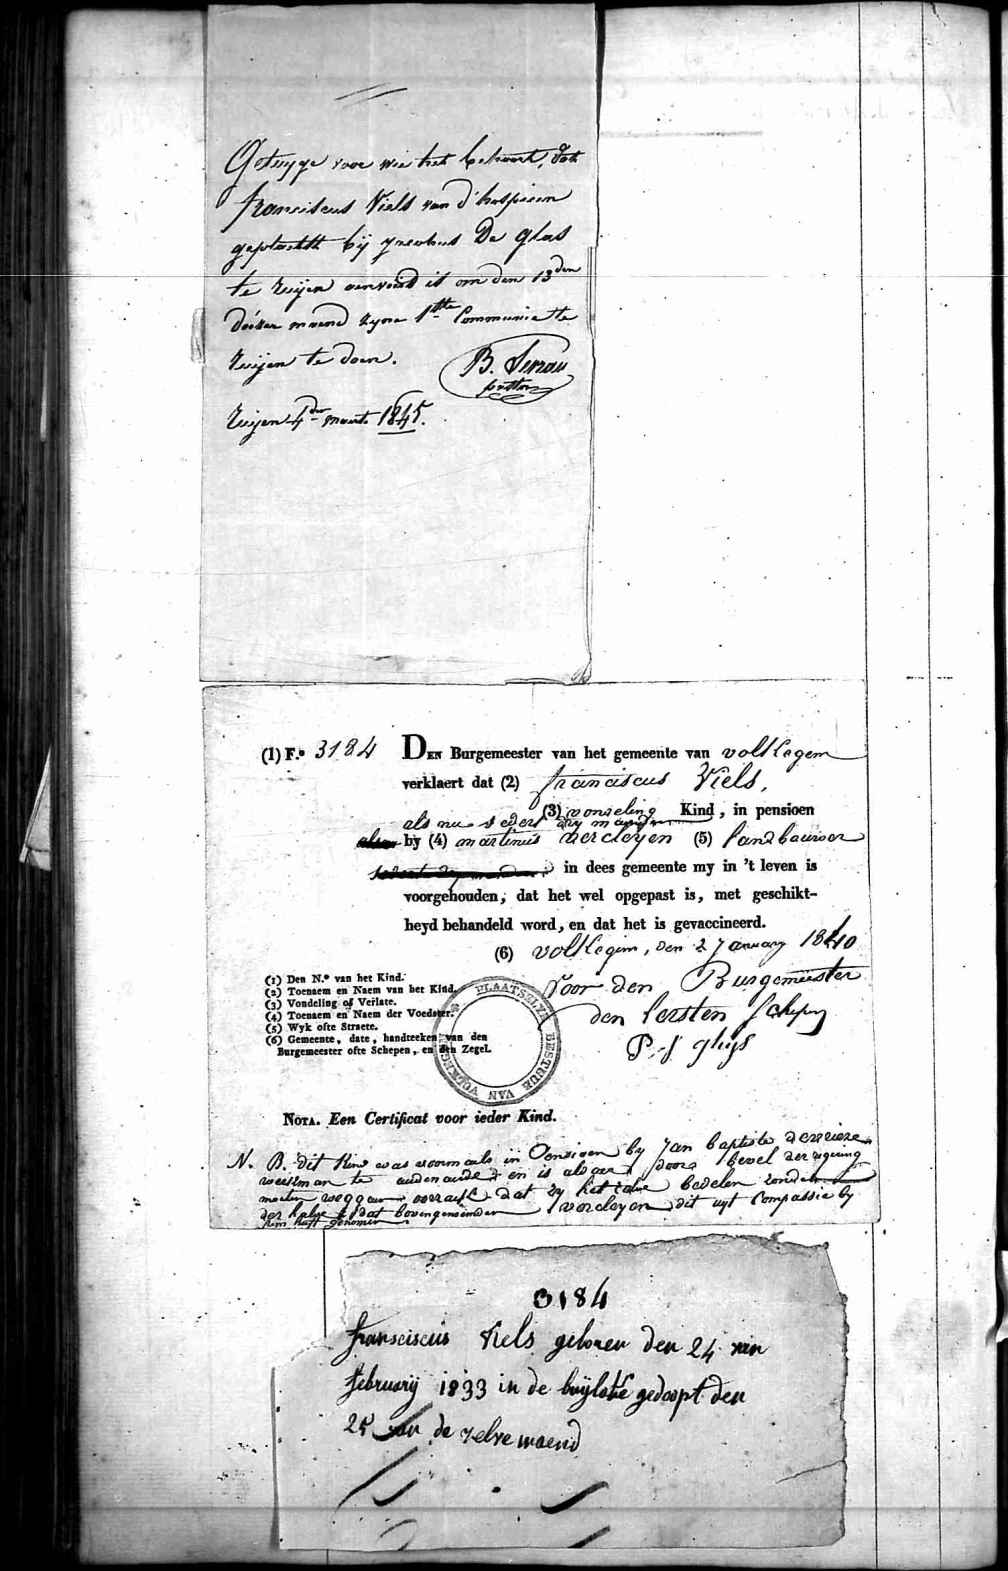 Getuyge voor wie het behoort, dat
franciscus Viels van d'hospicien
geplaetst bij jacobus De glas
te Ruijen aenveird is om den 13den
dezer maend zyne 1ste Communie te
Ruijen te doen.
B. Serrau
pastor
Ruijen 4der maert 1845.
(1) F.° 3184
DEN Burgemeester van het gemeente van volkegem
verklaert dat (2) franciscus Viels,
(3) vondeling Kind, in pensioen
als nu seders dry maenden
by (4) martinus vercleyen (5) landbouwer
in dees gemeente my in 't leven is
voorgehouden, dat het wel opgepast is, met geschikt-
heyd behandeld word, en dat het is gevaccineerd.
(6) volkegem, den 27 January 1840
Voor den Burgemeester
den Eersten Schepen
P. J. ghijs
(1) Den N.° van het Kind.
(2) Toenaem en Naem van het Kind.
(3) Vondeling of Verlate.
(4) Toenaem en Naem der Voedster.
(5) Wyk ofte Straete.
(6) Gemeente, date, handteeken van den
Burgemeester ofte Schepen, en den Zegel.
PLAATSELYK BESTUUR VAN VOLKEGEM
NOTA. Een Certificat voor ieder Kind.
N. B. dit Kind was voormaels in Pensioen by Jan baptiste
te audenaerde en is aldaer door bevel der regering
moeten weggaen oorzaeke dat zy het zelve bedelen zonden
der halve is dat bovengenoemden vercleyen dit uyt Compassie by
hem heeft genomen
3184
franseiscus Viels geboren den 24 van
february 1833 in de buijloke gedoopt den
25 van de zelve maend